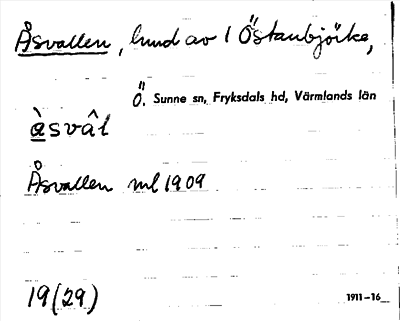 Åsvallen, hmd av 1 Östanbjörke,
Ö. Sunne sn, Fryksdals hd, Värmlands län
àsvâl
Åsvallen ml 1909
19(29)
1911–16